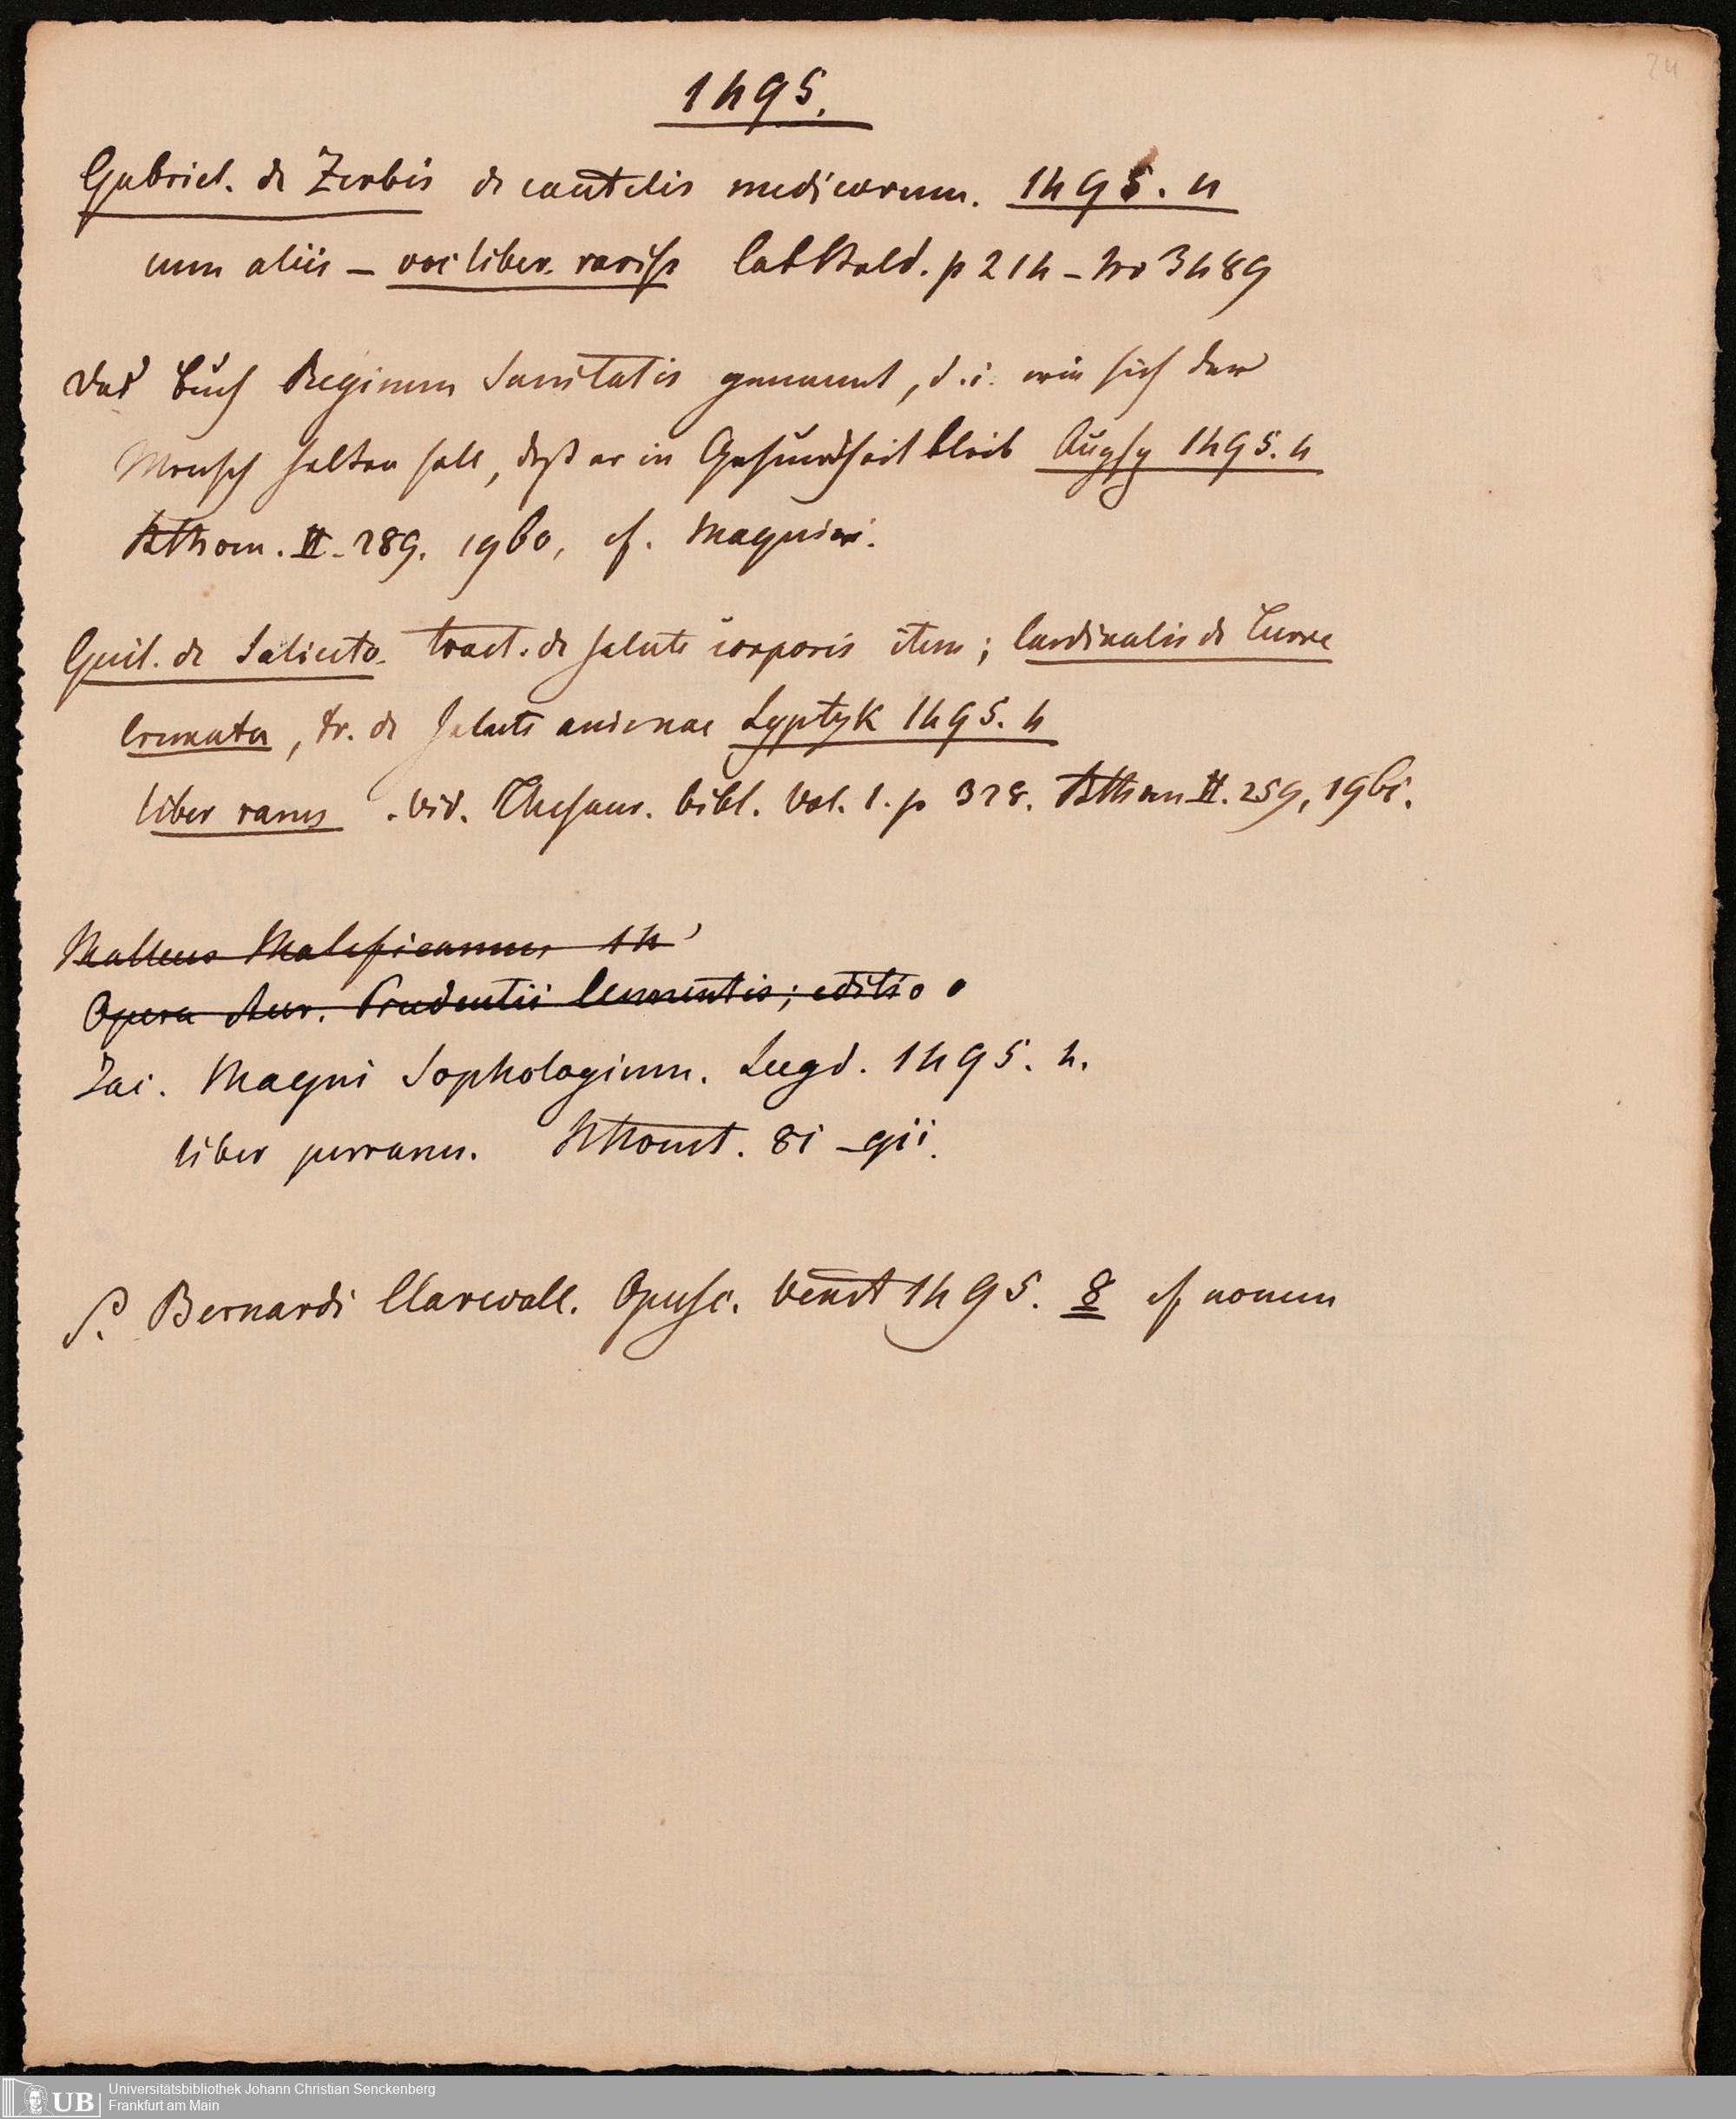 24
1495.
Gabriel. de Zerbis de cautelis medicorum. 1495. 4
cum aliis – liber. rariss Cat Bald. p 214 – No 3489
Das Buch Regimen Sanitatis genannt, d. i. wie sich der
Mensch halten soll, daß er in Gesundheit bleib Augsp 1495. 4
Bthom. II – 289. 1960, cf. Magnini.
Guil. de Saliceto. tract. de salute corporis item; Cardinalis de Turre
Cremata, tr. de salute animae Lyptzk 1495. 4
liber rarus . vid. Thesaur. bibl. Vol. 1. p 328. Bthom II. 259, 1961.
Malleus Maleficarum 14
Opera Aur. Prudentii Clementis; editio
Jac. Magni Sophologium. Lugd. 1495. 4.
liber perrarus. 81 – 911.
S. Bernardi Clarevall. Opusc. Venet 1495. 8 cf nomen
UB
Universitätsbibliothek Johann Christian Senckenberg
Frankfurt am Main